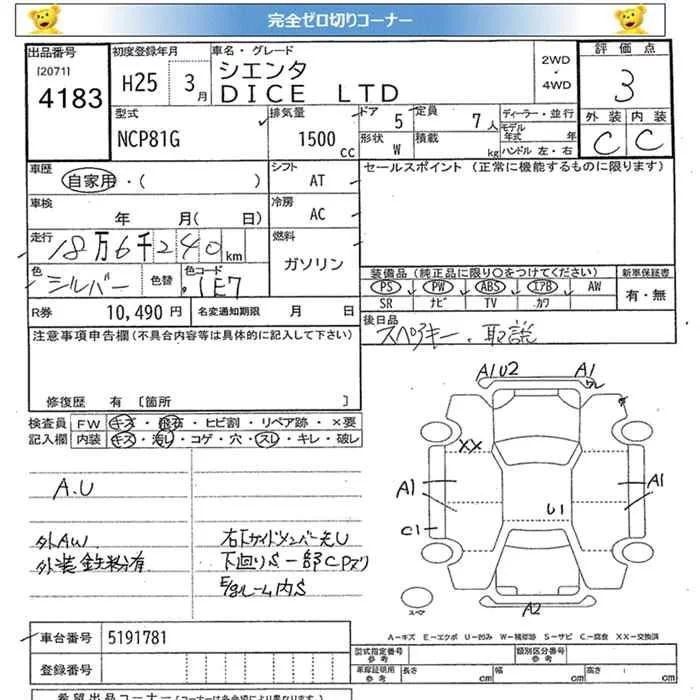 完全ゼロ切りコーナー
出品番号
[2071]
4183
初度登録年月
H25 3月
車名・グレード
シエンタ
DICE LTD
2WD
・
4WD
評価点
3
外装 内装
C C
型式
NCP81G
排気量
1500 cc
ドア 5
定員 7人
形状 W
積載 kg
ディーラー・並行
モデル年式 年
ハンドル 左・右
車歴
自家用・( )
シフト
AT
セールスポイント (正常に機能するものに限ります)
車検
年 月( 日)
冷房
AC
走行
18万6千240km
燃料
ガソリン
色
シルバー
色替
色コード
1E7
装備品(純正品に限り○をつけてください)
PS PW ABS エアB AW
SR ナビ TV カワ
新車保証書
有・無
R券 10,490円
名変通知期限 月 日
後日品
スペアキー、取説
注意事項申告欄(不具合内容等は具体的に記入して下さい)
修復歴 有 [箇所 ]
検査員
記入欄
FW キズ・飛石・ヒビ割・リペア跡・×要
内装 キズ・汚レ・コゲ・穴・スレ・キレ・破レ
A.U
外AW
外装鉄粉有
右下サイドメンバー先U
下廻りS 一部CPヌリ
E/gルーム内S
A1U2
A1
XX
A1
A1
C1
U1
A2
スペア
A-キズ E-エクボ U-凹み W-補修跡 S-サビ C-腐食 XX-交換済
車台番号 5191781
登録番号
型式指定番号
参考
類別区分番号
参考
車庫証明用
参考
長さ cm
幅 cm
高さ cm
希望出品コーナー